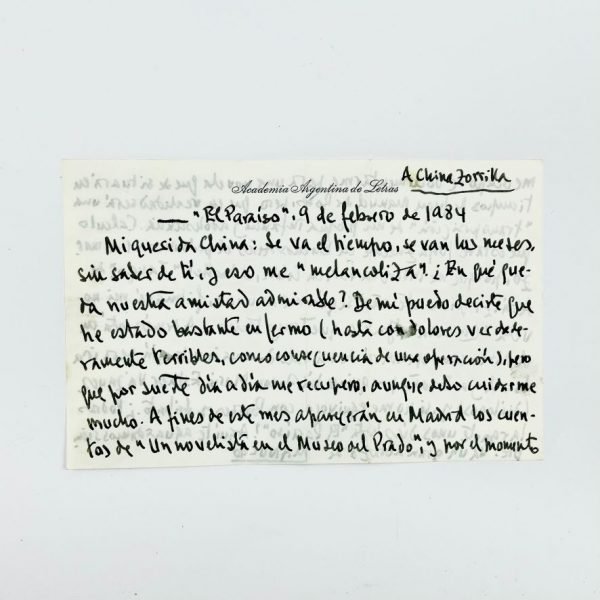 A China Zorrilla
Academia Argentina de Letras
— "El Paraíso", 9 de febrero de 1984
Mi querida China: Se va el tiempo, se van los meses,
sin saber de ti, y eso me "melancoliza". ¿En qué que-
da nuestra amistad admirable? De mí puedo decirte que
he estado bastante enfermo (hasta con dolores verdade-
ramente terribles, como consecuencia de una operación), pero
que por suerte día a día me recupero, aunque debo cuidarme
mucho. A fines de este mes aparecerán en Madrid los cuen-
tos de "Un novelista en el Museo del Prado", y por el momento